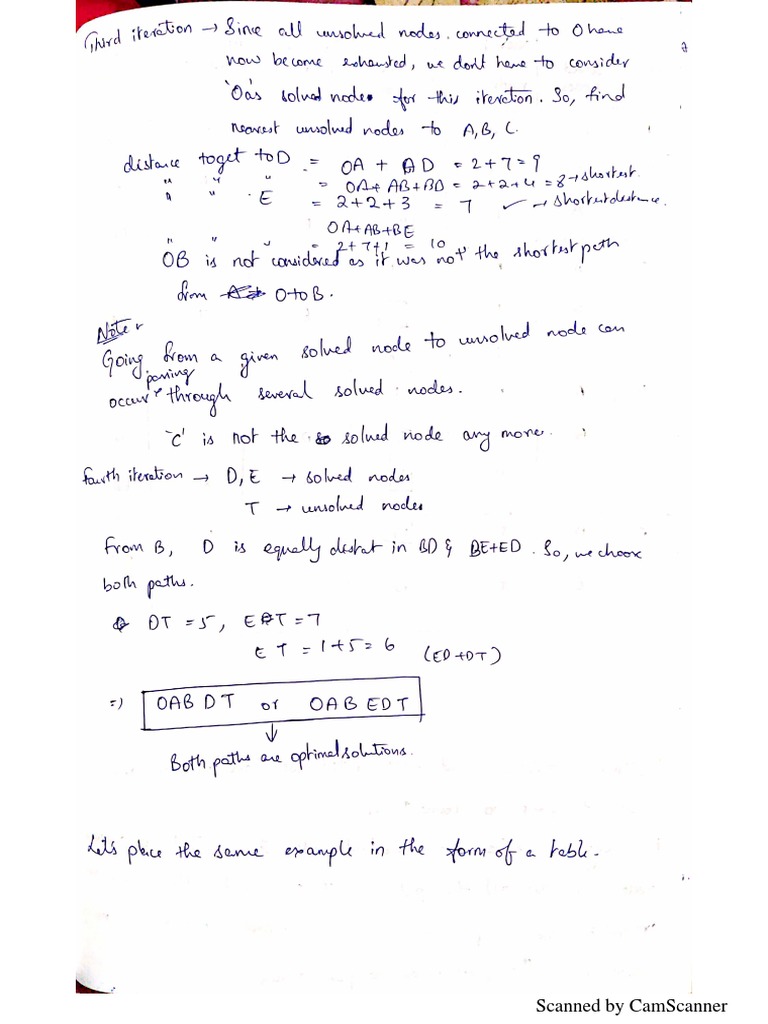 Third iteration → Since all unsolved nodes connected to O have
now become exhausted, we dont have to consider
'O' as solved node for this iteration. So, find
nearest unsolved nodes to A, B, C.
distance to get to D = OA + AD = 2+7 = 9
" " " = OA + AB + BD = 2+2+4 = 8 → shortest.
" " " E = 2+2+3 = 7 ✓ → shortest distance.
OA+AB+BE
" " " = 2+7+1 = 10
OB is not considered as it was not the shortest path
from O to B.
Note:
Going from a given solved node to unsolved node can
occur passing through several solved nodes.
'C' is not the solved node any more.
fourth iteration → D, E → solved nodes
T → unsolved nodes
From B, D is equally distat in BD & BE+ED. So, we choose
both paths.
DT = 5, ET = 7
ET = 1+5 = 6 (ED+DT)
=) OAB DT or OAB EDT
Both paths are optimal solutions.
Lets place the same example in the form of a table.
Scanned by CamScanner